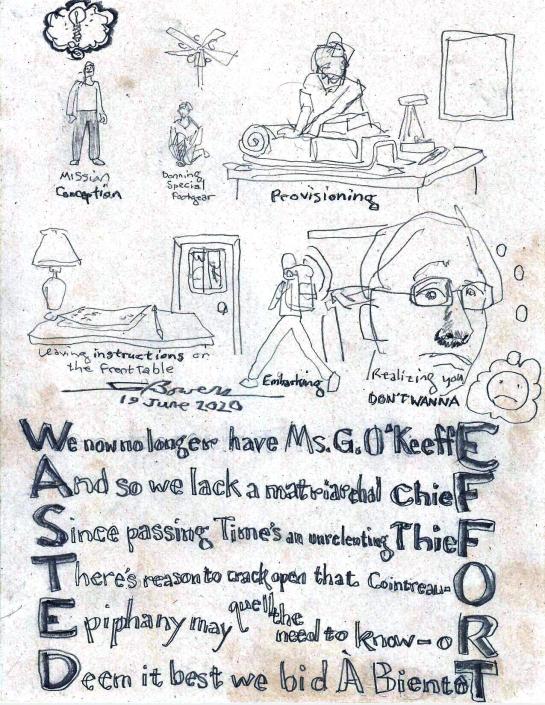 Mission
Conception
Donning
Special
Footgear
Provisioning
Leaving instructions on
the Front Table
Bowen
19 June 2020
Embarking
Realizing you
DON'T WANNA
We now no longer have Ms. G. O'KeeffE
And so we lack a matriarchal ChieF
Since passing Time's an unrelenting ThieF
There's reason to crack open that Cointreau-O
Epiphany may quell the need to know-oR
Deem it best we bid À BientôT